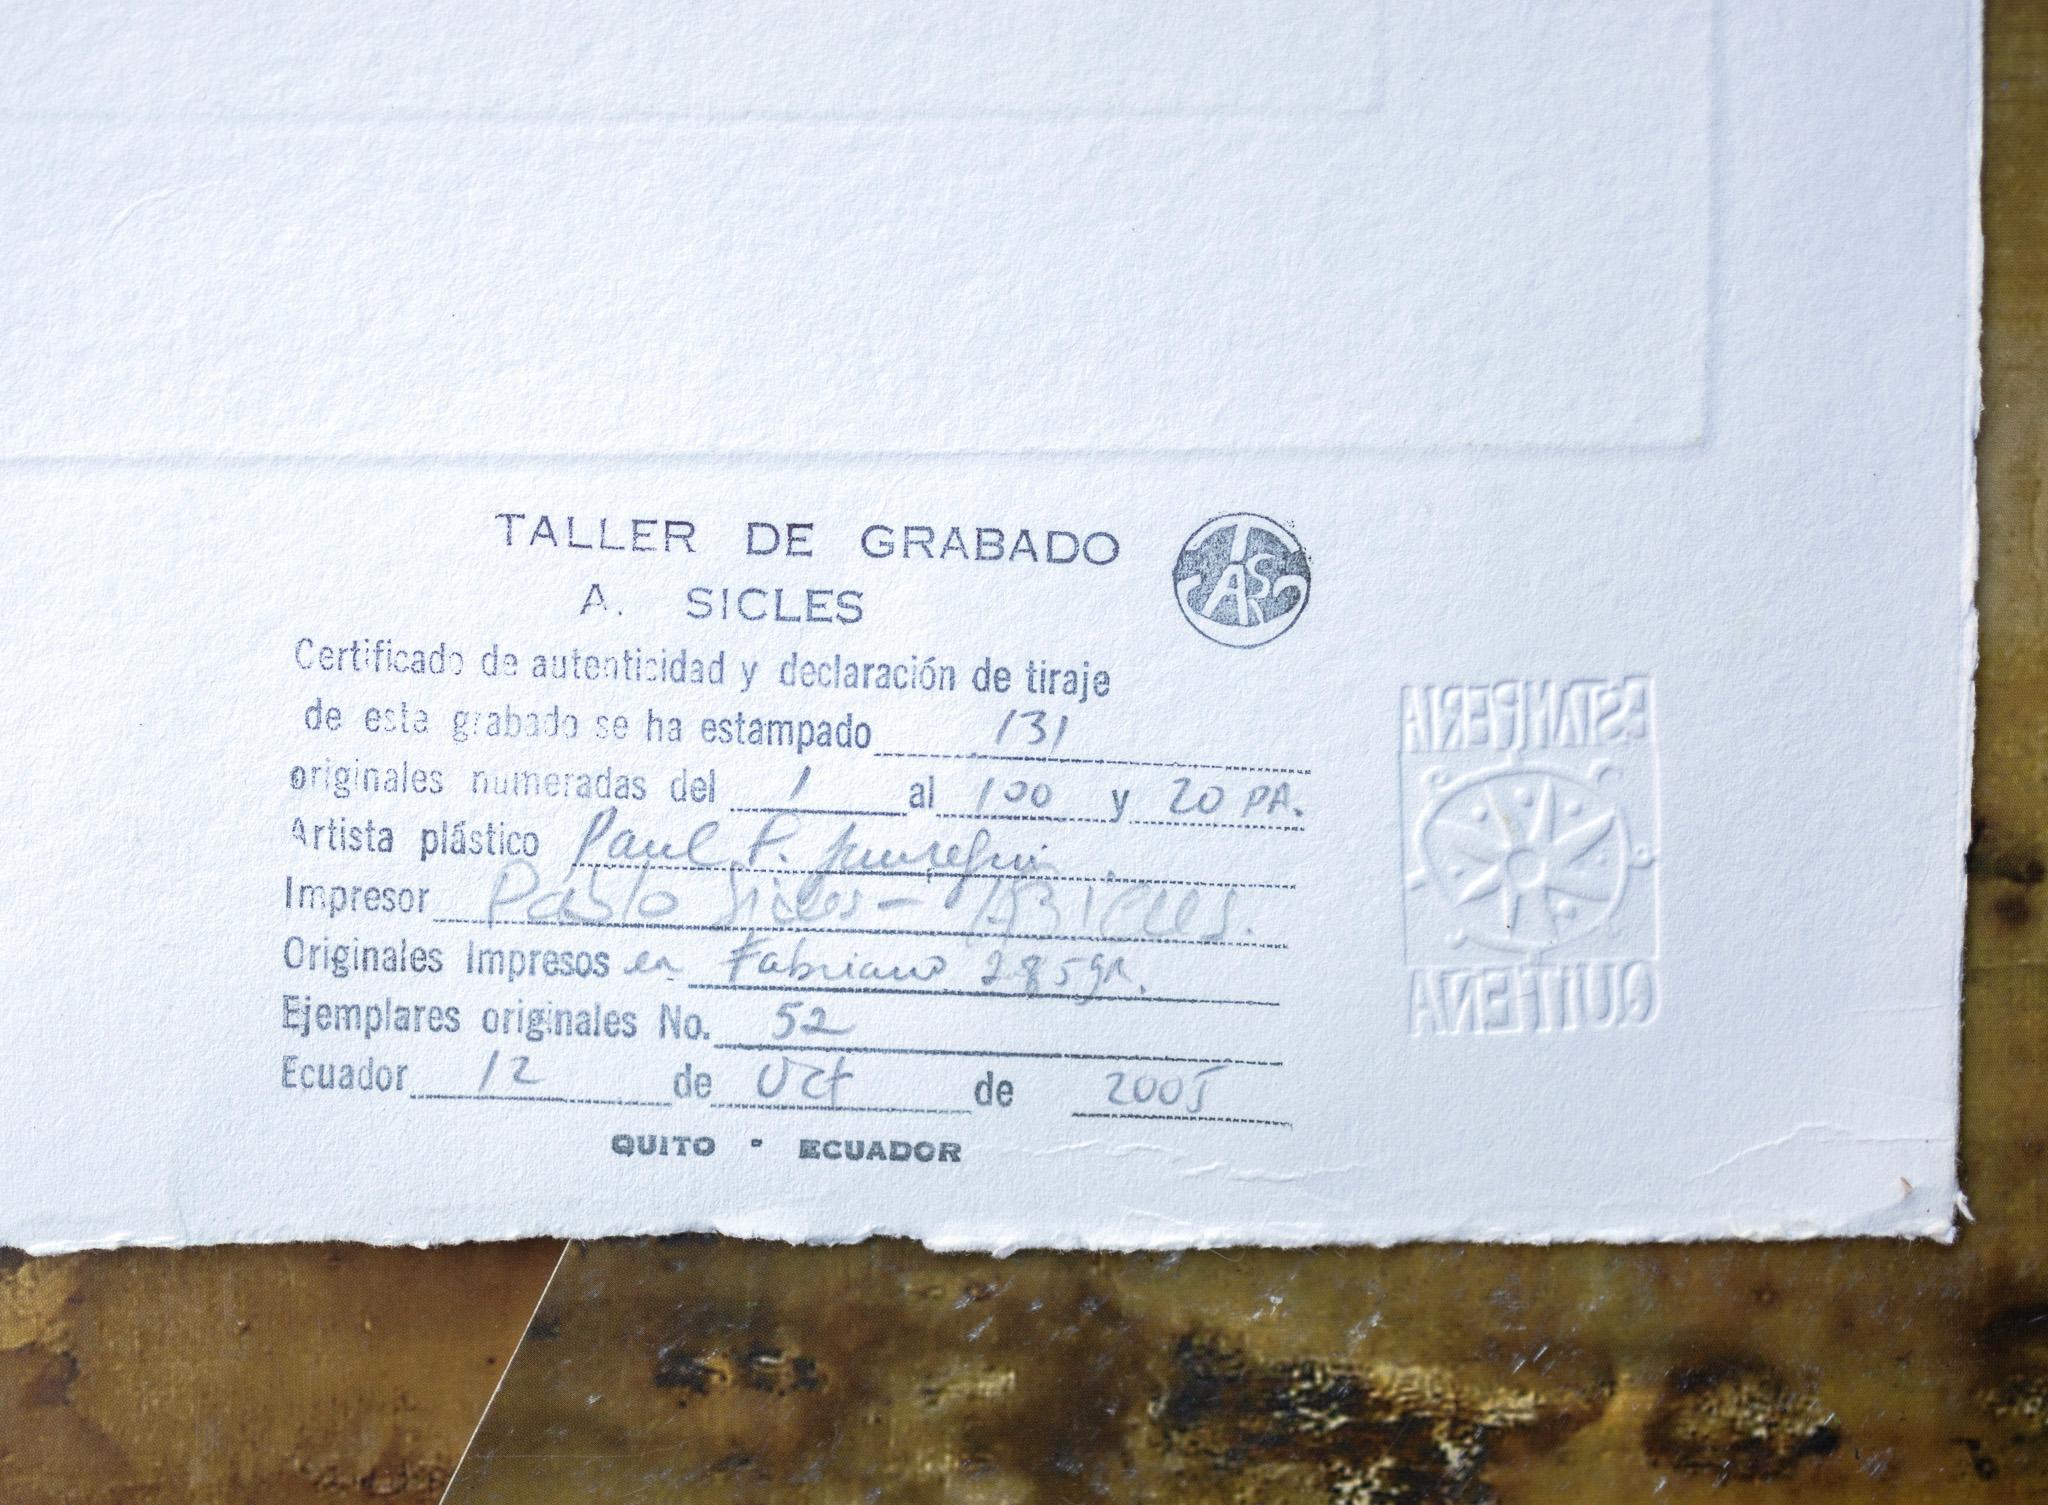 TALLER DE GRABADO
A. SICLES
Certificado de autenticidad y declaración de tiraje
de este grabado se ha estampado 131
originales numeradas del 1 al 100 y 20 PA.
Artista plástico Paul P.
Impresor Pablo Sicles - A Sicles.
Originales Impresos en Fabriano 285gr.
Ejemplares originales No. 52
Ecuador 12 de Oct de 2005
QUITO - ECUADOR
ESTAMPERIA
QUITEÑA